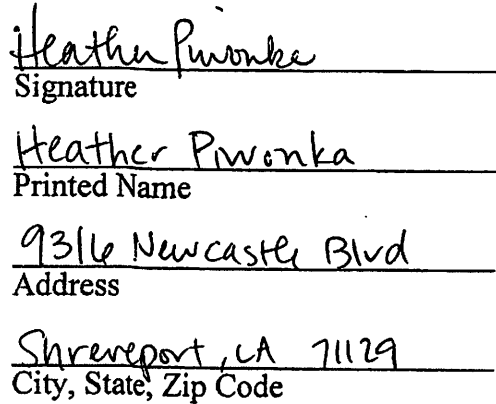 Heather Piwonka
Signature
Heather Piwonka
Printed Name
9316 Newcastle Blvd
Address
Shreveport, LA 71129
City, State, Zip Code